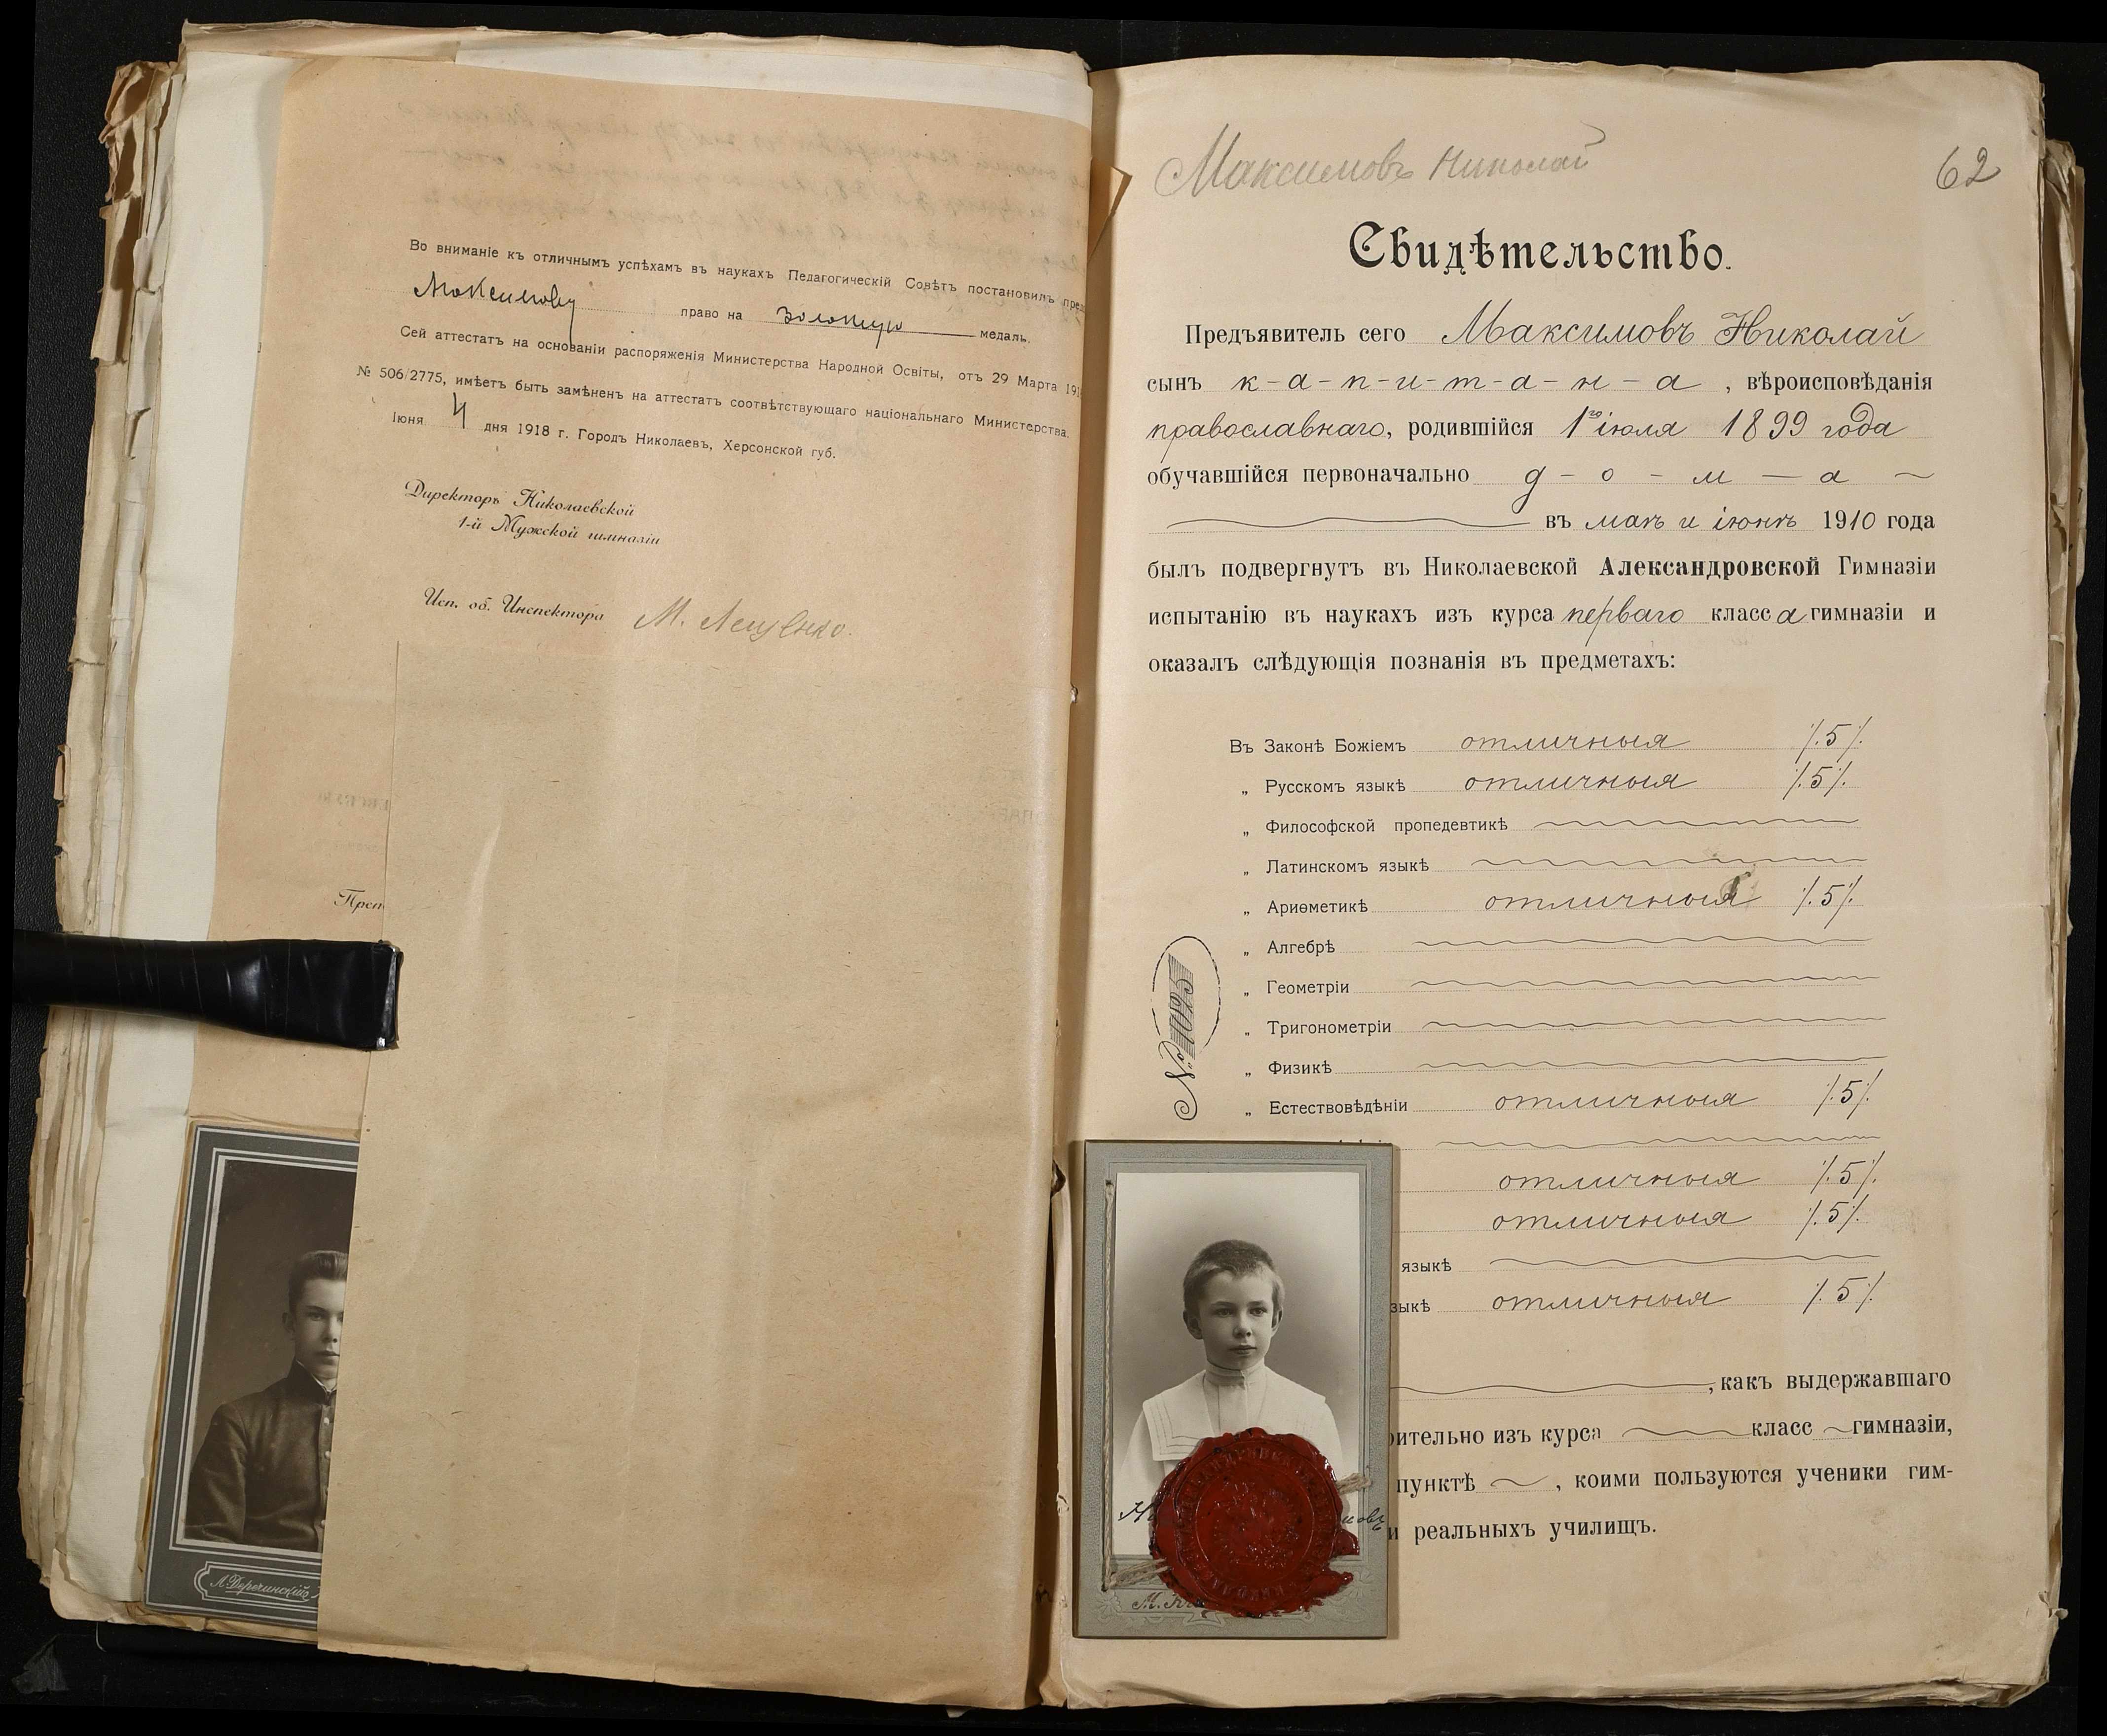 Во вниманіе къ отличнымъ успѣхамъ въ наукахъ Педагогическій Совѣтъ постановилъ
Максимову право на золотую медаль.
Сей аттестатъ на основаніи распоряженія Министерства Народной Освіты, отъ 29 Марта
№ 506/2775, имѣетъ быть замѣненъ на аттестатъ соотвѣтствующаго національнаго Министерства.
Іюня 4 дня 1918 г. Городъ Николаевъ, Херсонской губ.
Директоръ Николаевской
1-й Мужской гимназіи
Исп. об. Инспектора М. Лещенко.
А. Деречинскій
Максимовъ Николай
62
Свидѣтельство.
Предъявитель сего Максимовъ Николай
сынъ к-а-п-и-т-а-н-а, вѣроисповѣданія
православнаго, родившійся 1го іюля 1899 года
обучавшійся первоначально д-о-м-а
въ маѣ и іюнѣ 1910 года
былъ подвергнутъ въ Николаевской Александровской Гимназіи
испытанію въ наукахъ изъ курса перваго класса гимназіи и
оказалъ слѣдующія познанія въ предметахъ:
Въ Законѣ Божіемъ отличныя /.5/.
„ Русскомъ языкѣ отличныя /.5/.
„ Философской пропедевтикѣ
„ Латинскомъ языкѣ
„ Ариѳметикѣ отличныя /.5/.
„ Алгебрѣ
„ Геометріи
„ Тригонометріи
„ Физикѣ
„ Естествовѣдѣніи отличныя /.5/.
отличныя /.5/.
отличныя /.5/.
языкѣ
зыкѣ отличныя /.5/.
№ 1025
, какъ выдержавшаго
рительно изъ курса класс гимназіи,
пунктѣ , коими пользуются ученики гим-
и реальныхъ училищъ.